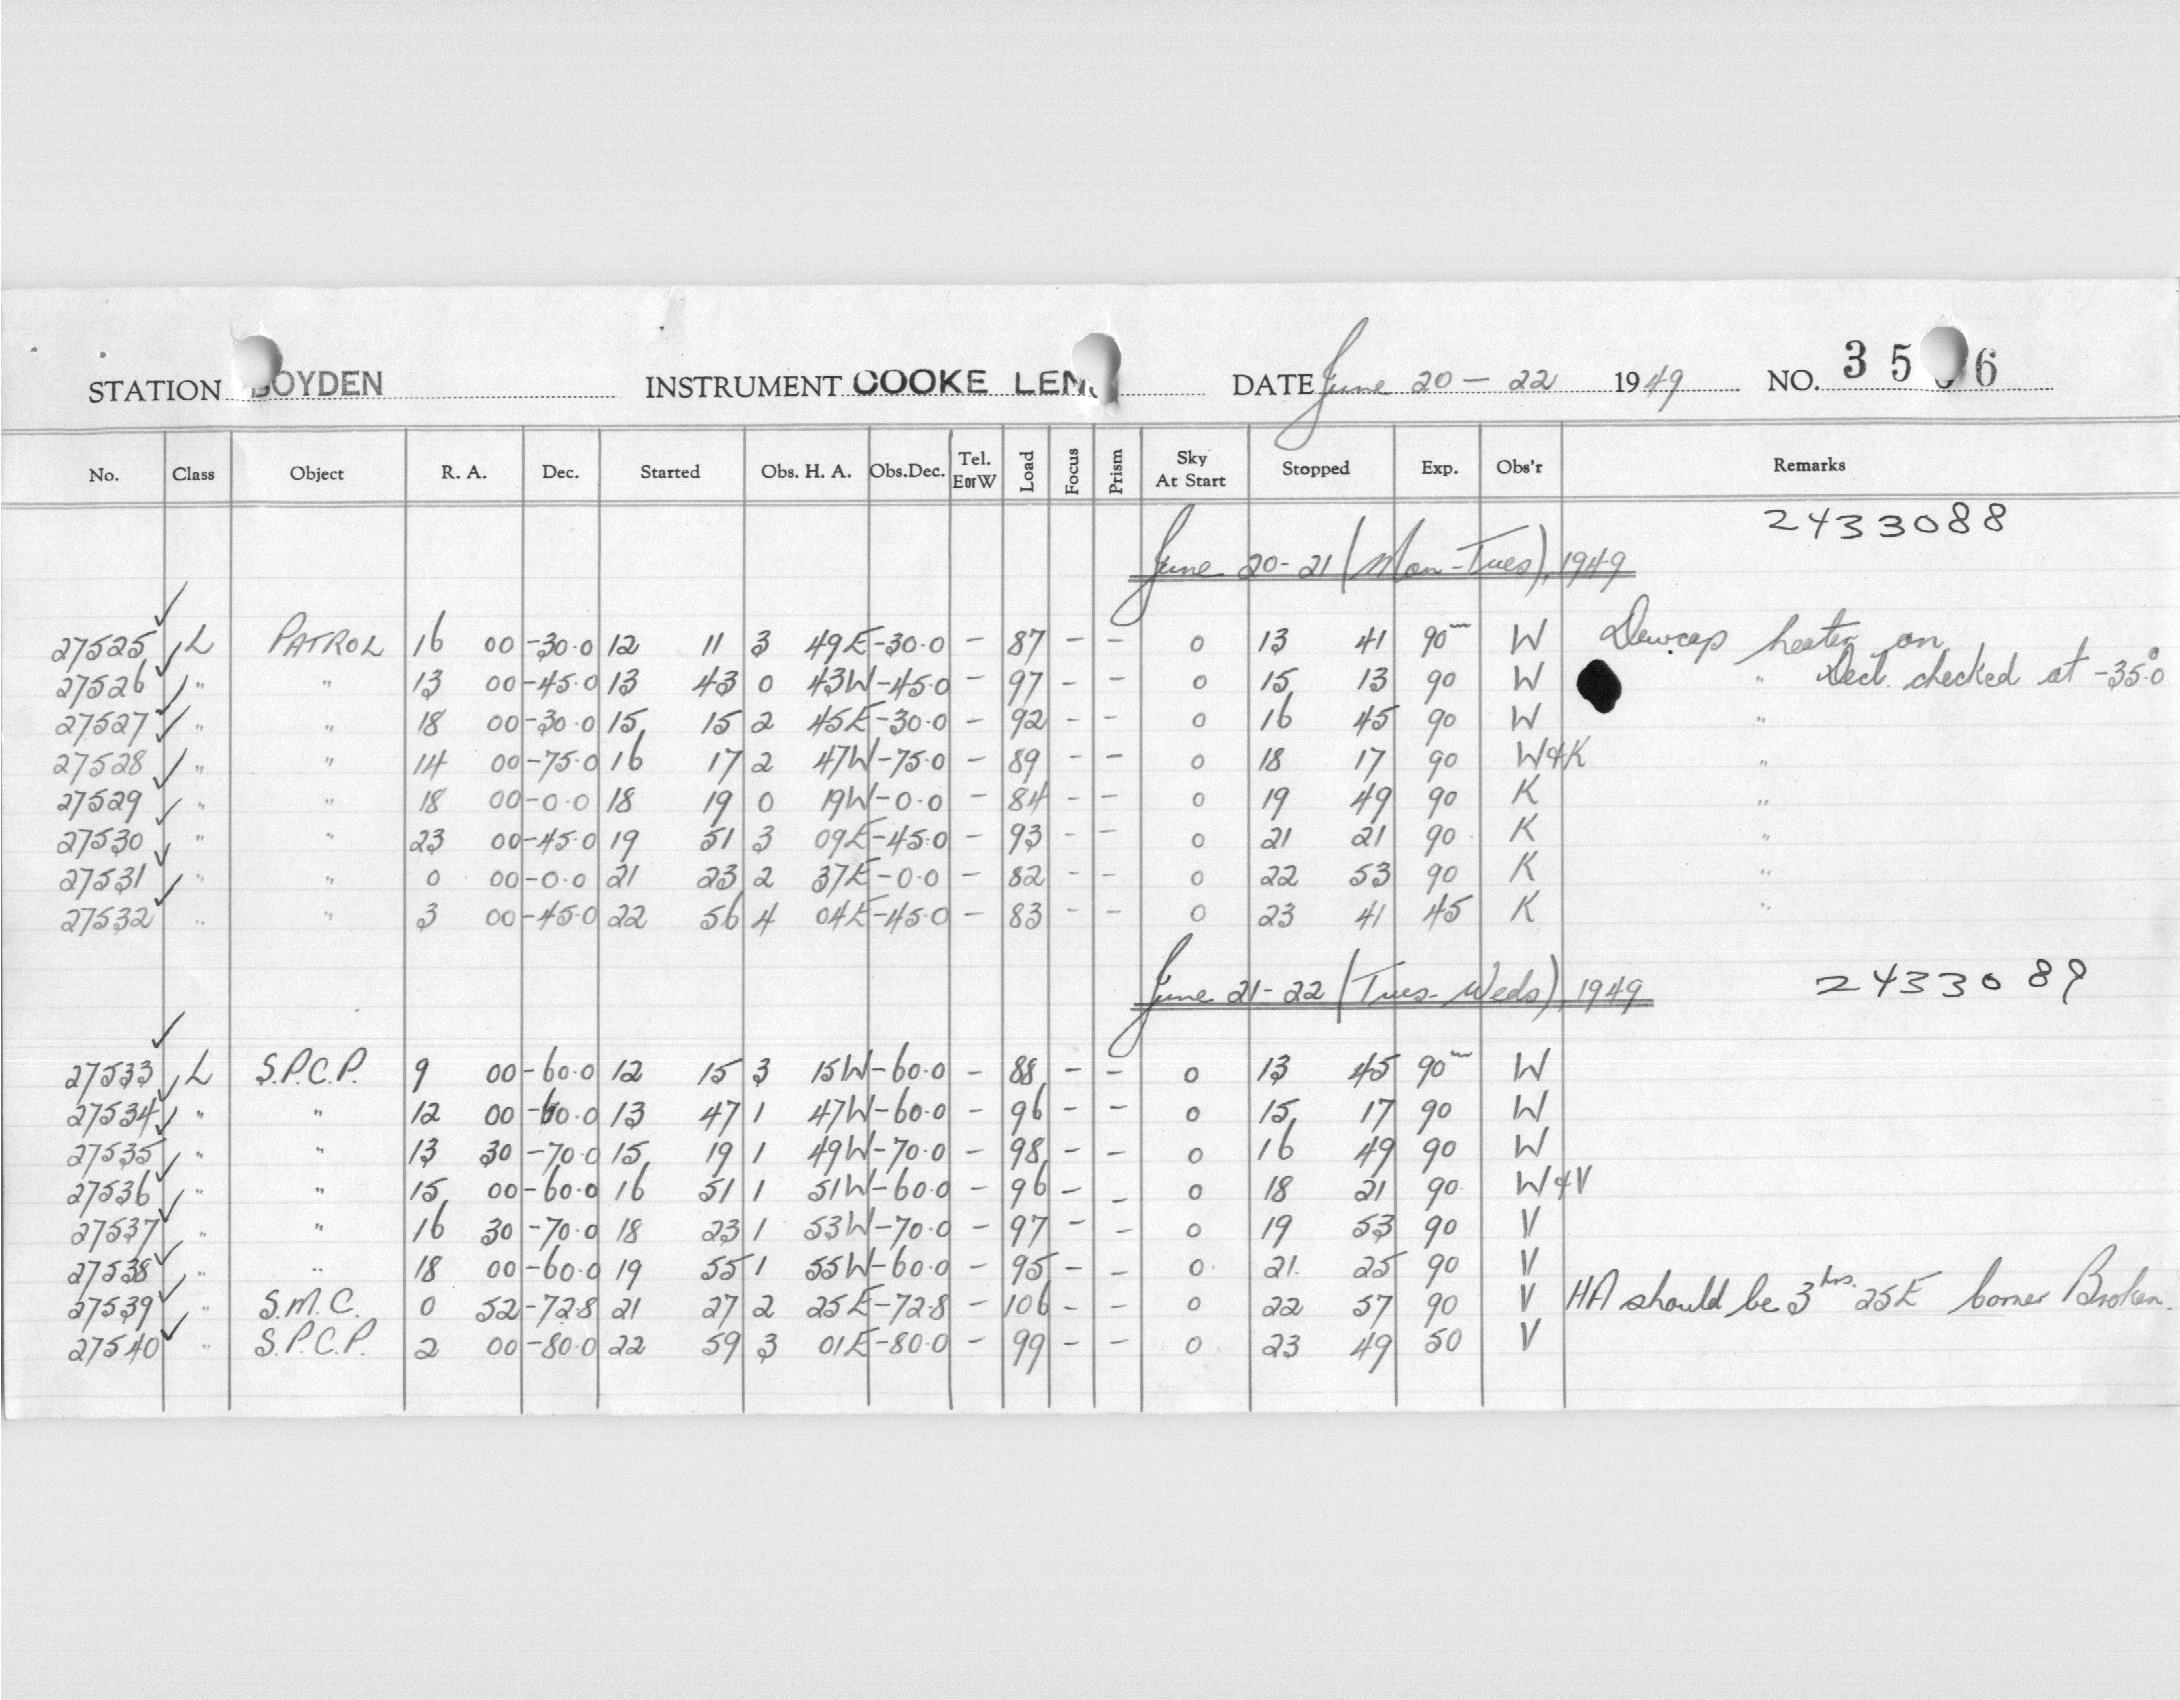 STATION BOYDEN INSTRUMENT COOKE LENS DATE June 20 - 22 1949 NO. 35 6
No. Class Object R. A. Dec. Started Obs. H. A. Obs.Dec. Tel. EorW Load Focus Prism Sky At Start Stopped Exp. Obs'r Remarks
2433088
June 20-21 (Mon-Tues), 1949
27525 L PATROL 16 00 -30.0 12 11 3 49E -30.0 - 87 - - 0 13 41 90m W Dewcap heater on
27526 " " 13 00 -45.0 13 43 0 43W -45.0 - 97 - - 0 15 13 90 W " Decl. checked at -35°.0
27527 " " 18 00 -30.0 15 15 2 45E -30.0 - 92 - - 0 16 45 90 W "
27528 " " 14 00 -75.0 16 17 2 47W -75.0 - 89 - - 0 18 17 90 W&K "
27529 " " 18 00 -0.0 18 19 0 19W -0.0 - 84 - - 0 19 49 90 K "
27530 " " 23 00 -45.0 19 51 3 09E -45.0 - 93 - - 0 21 21 90 K "
27531 " " 0 00 -0.0 21 23 2 37E -0.0 - 82 - - 0 22 53 90 K "
27532 " " 3 00 -45.0 22 56 4 04E -45.0 - 83 - - 0 23 41 45 K "
June 21-22 (Tues-Weds), 1949 2433089
27533 L S.P.C.P. 9 00 -60.0 12 15 3 15W -60.0 - 88 - - 0 13 45 90m W
27534 " " 12 00 -60.0 13 47 1 47W -60.0 - 96 - - 0 15 17 90 W
27535 " " 13 30 -70.0 15 19 1 49W -70.0 - 98 - - 0 16 49 90 W
27536 " " 15 00 -60.0 16 51 1 51W -60.0 - 96 - - 0 18 21 90 W&V
27537 " " 16 30 -70.0 18 23 1 53W -70.0 - 97 - - 0 19 53 90 V
27538 " " 18 00 -60.0 19 55 1 55W -60.0 - 95 - - 0 21 25 90 V
27539 " S.M.C. 0 52 -72.8 21 27 2 25E -72.8 - 106 - - 0 22 57 90 V HA should be 3hrs. 25E Broken.
27540 " S.P.C.P. 2 00 -80.0 22 59 3 01E -80.0 - 99 - - 0 23 49 50 V